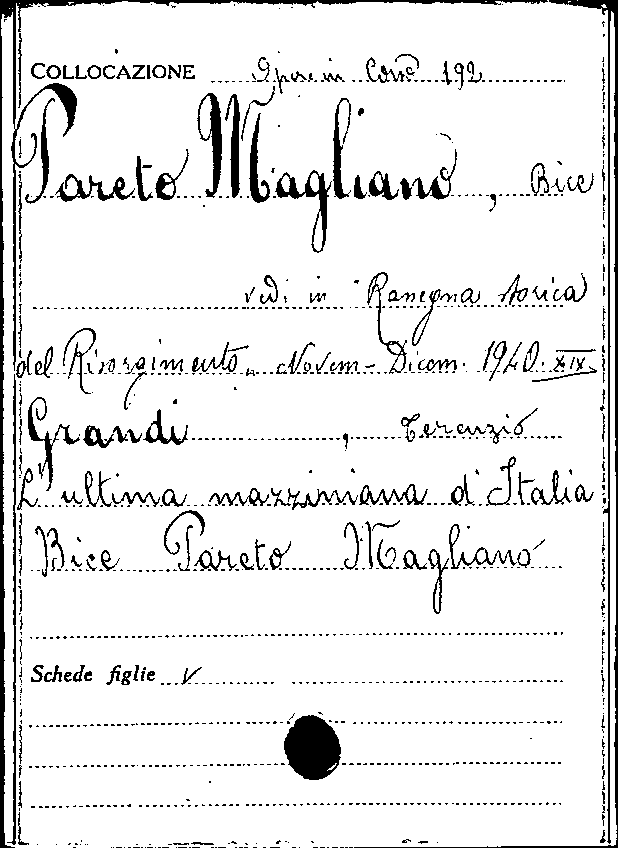 COLLOCAZIONE Opere in Corso 192
Pareto Magliano, Bice
vedi in "Rassegna storica
del Risorgimento" Novem-Dicem. 1940. XIX.
Grandi, Terenzio
L'ultima mazziniana d'Italia
Bice Pareto Magliano
Schede figlie V